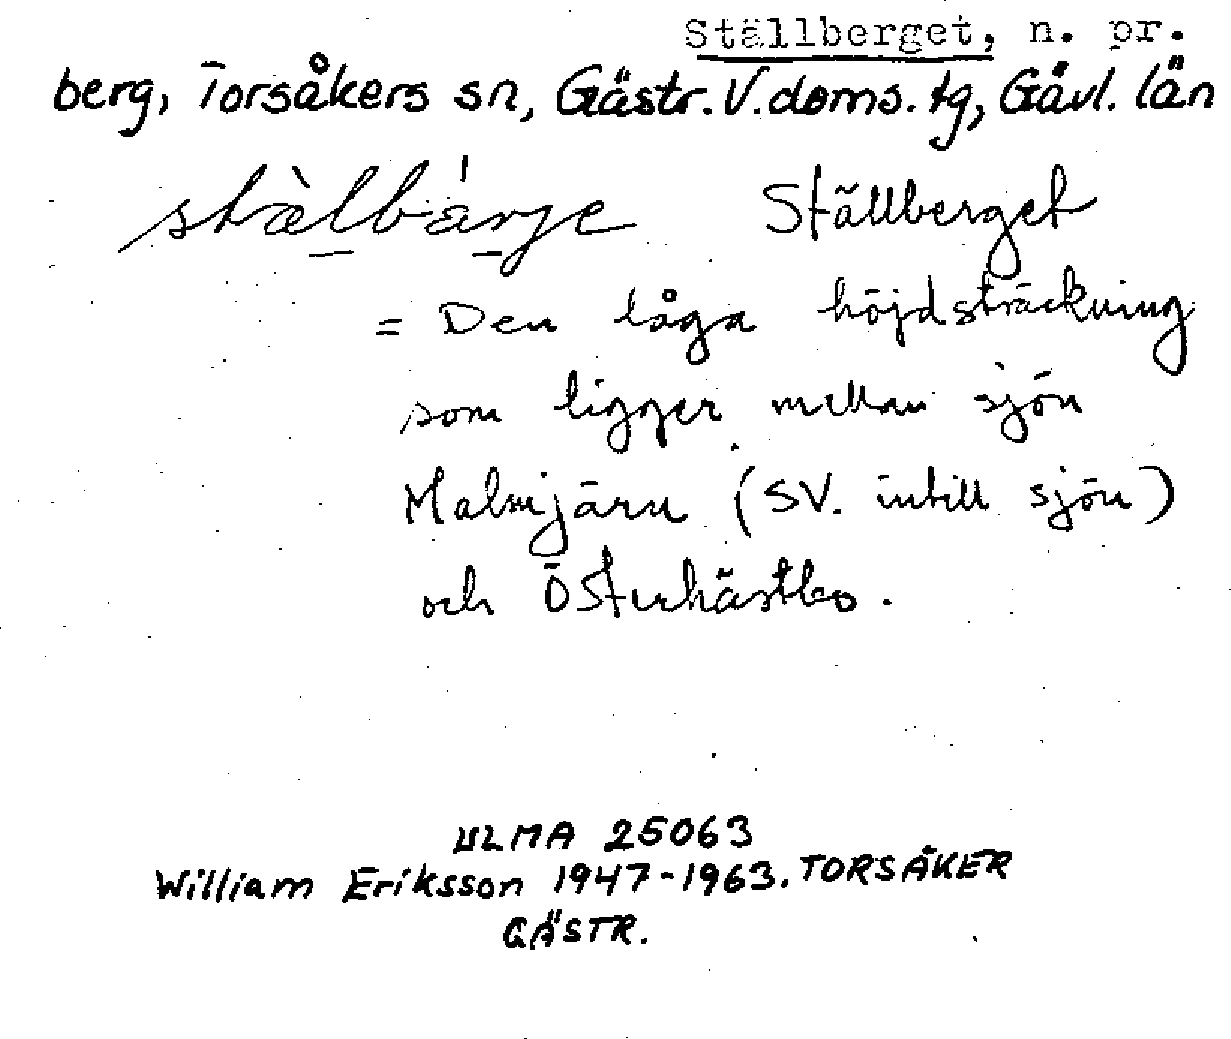 Ställberget, n. pr.
berg, Torsåkers sn, Gästr. V. doms. tg, Gävl. län
stæ̀lbárje Ställberget
= Den låga höjdsträckning
som ligger mellan sjön
Malmjärn (SV. intill sjön)
och Österhästbo.
ULMA 25063
William Eriksson 1947-1963. TORSÅKER
GÄSTR.